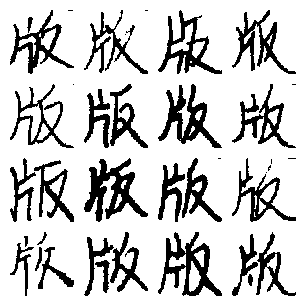 版版版版
版版版版
版版版版
版版版版